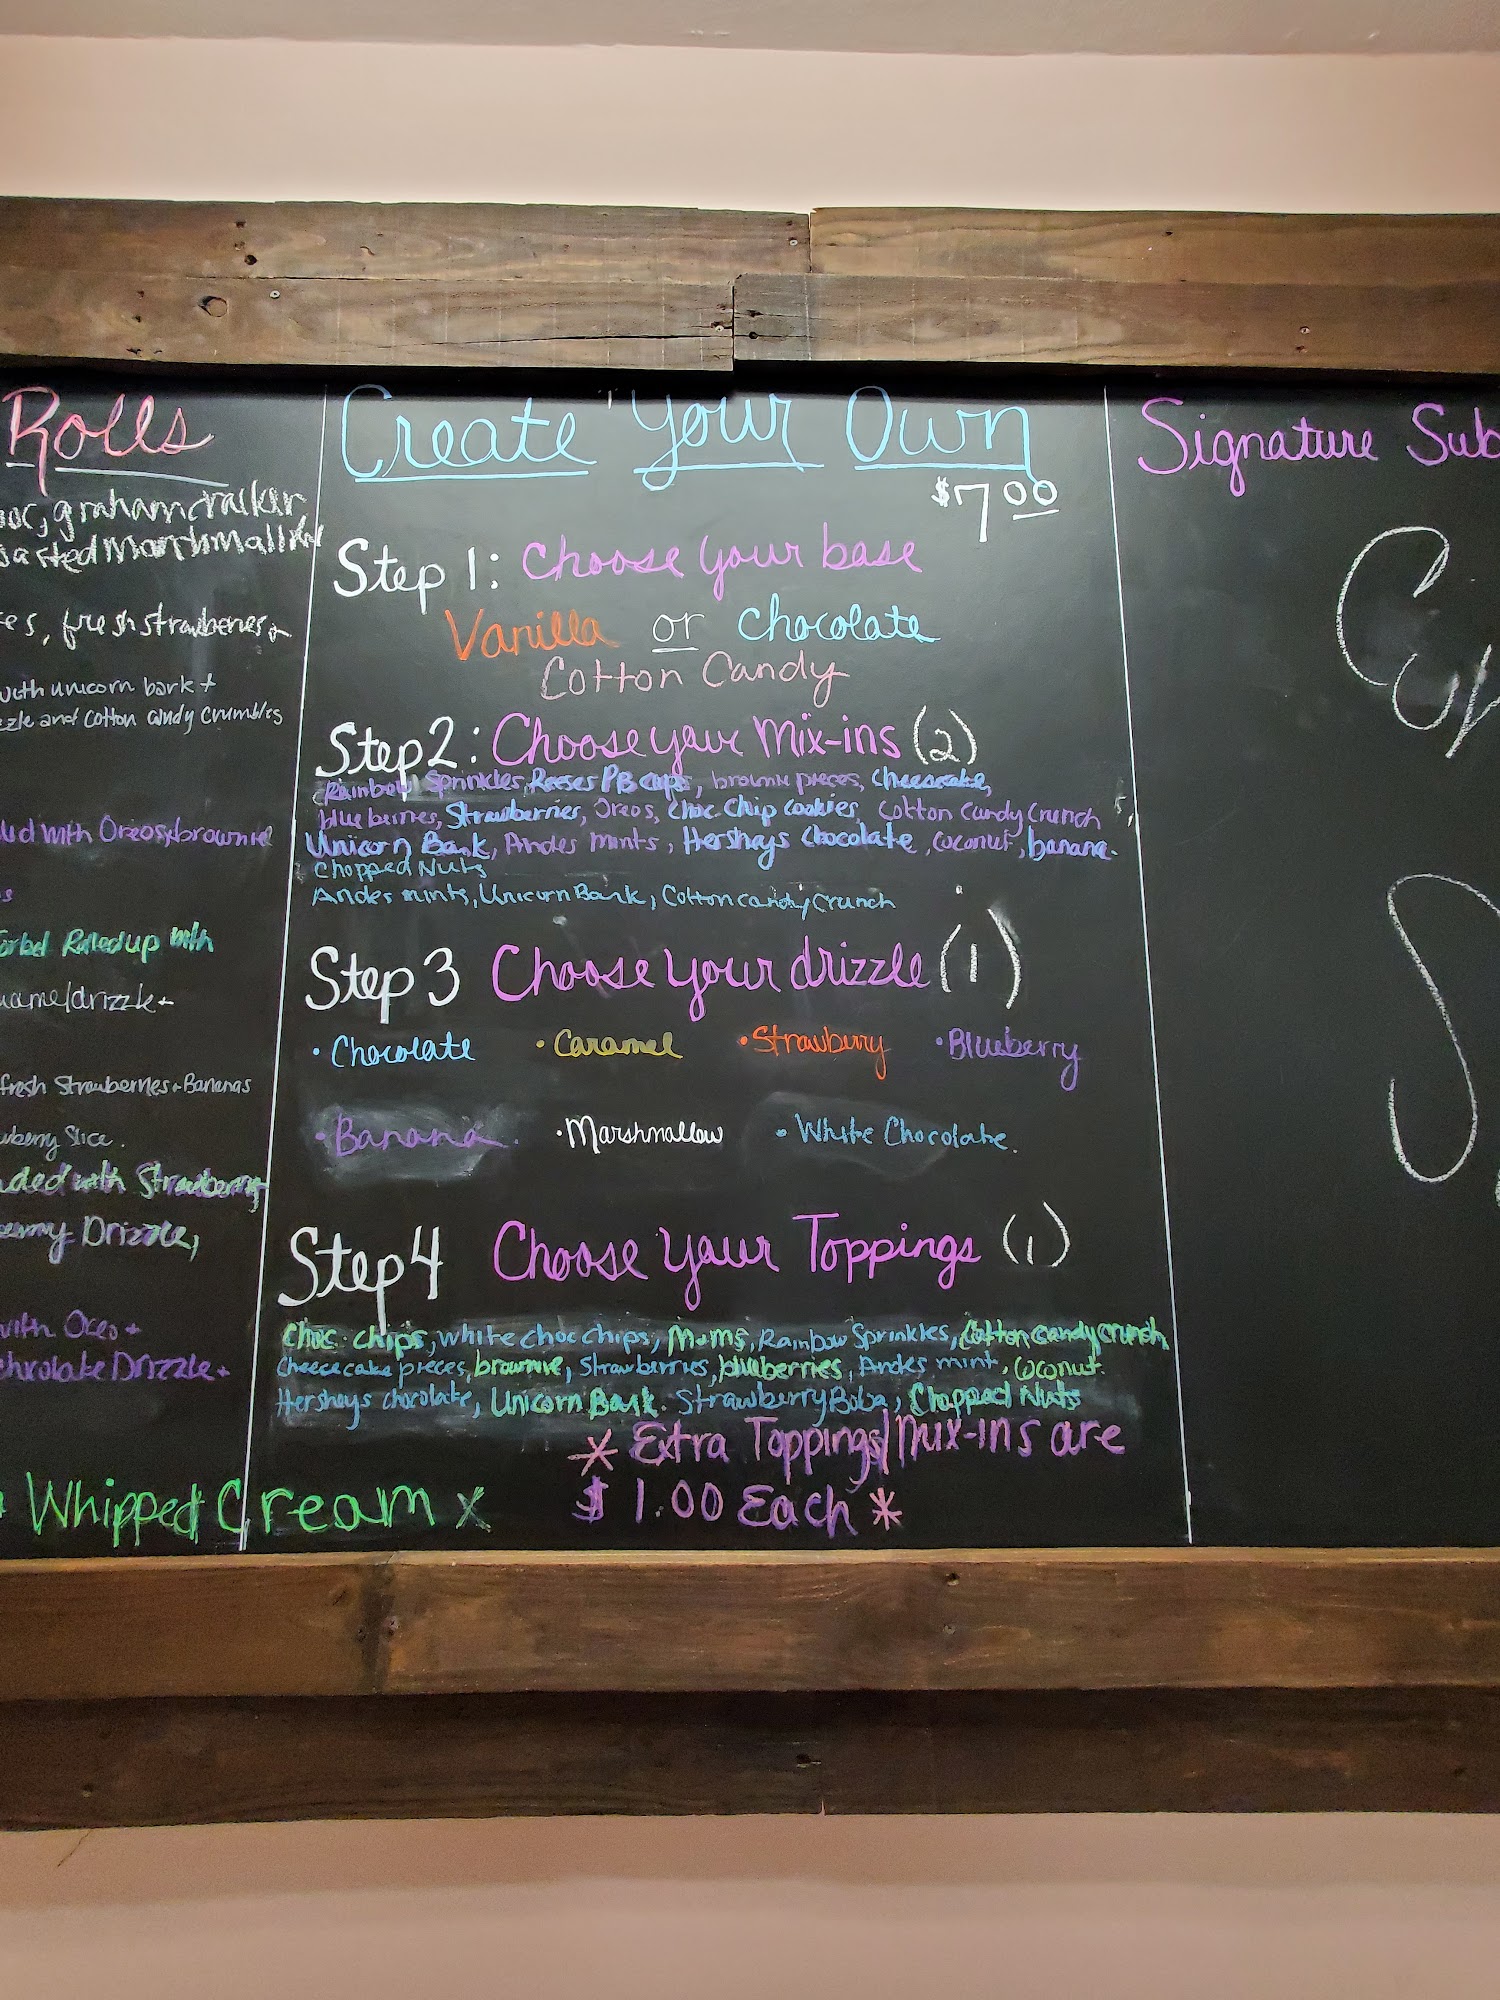 Rolls
grahamcracker
toastedMarshMallow
fresh strawberries +
with unicorn bark +
and cotton candy crumbles
with Oreos, brownie
Rolledup with
drizzle +
fresh Strawberries + Bananas
Slice.
with Strawberry
Drizzle,
with Oreo +
chocolate Drizzle +
Whipped Cream x
Create Your Own
$7.00
Step 1: Choose your base
Vanilla or Chocolate
Cotton Candy
Step 2: Choose your Mix-ins (2)
Rainbow Sprinkles, Reeses PB cups, brownie pieces, cheesecake,
blueberries, Strawberries, Oreos, Choc. Chip cookies, Cotton Candy Crunch
Unicorn Bark, Andes mints, Hersheys Chocolate, coconut, banana.
Chopped Nuts
Andes mints, Unicorn Bark, Cotton candy Crunch
Step 3 Choose your drizzle (1)
• Chocolate • Caramel • Strawberry • Blueberry
• Banana. • Marshmallow • White Chocolate.
Step 4 Choose your Toppings (1)
Choc. chips, white choc chips, M+Ms, Rainbow Sprinkles, Cotton candy crunch,
Cheesecake pieces, brownie, Strawberries, blueberries, Andes mint, coconut.
Hersheys chocolate, Unicorn Bark. Strawberry Boba, Chopped Nuts
* Extra Toppings/Mix-ins are
$1.00 Each *
Signature